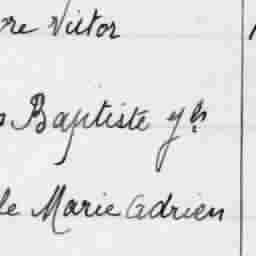 Victor
Baptiste
le Marie Adrien